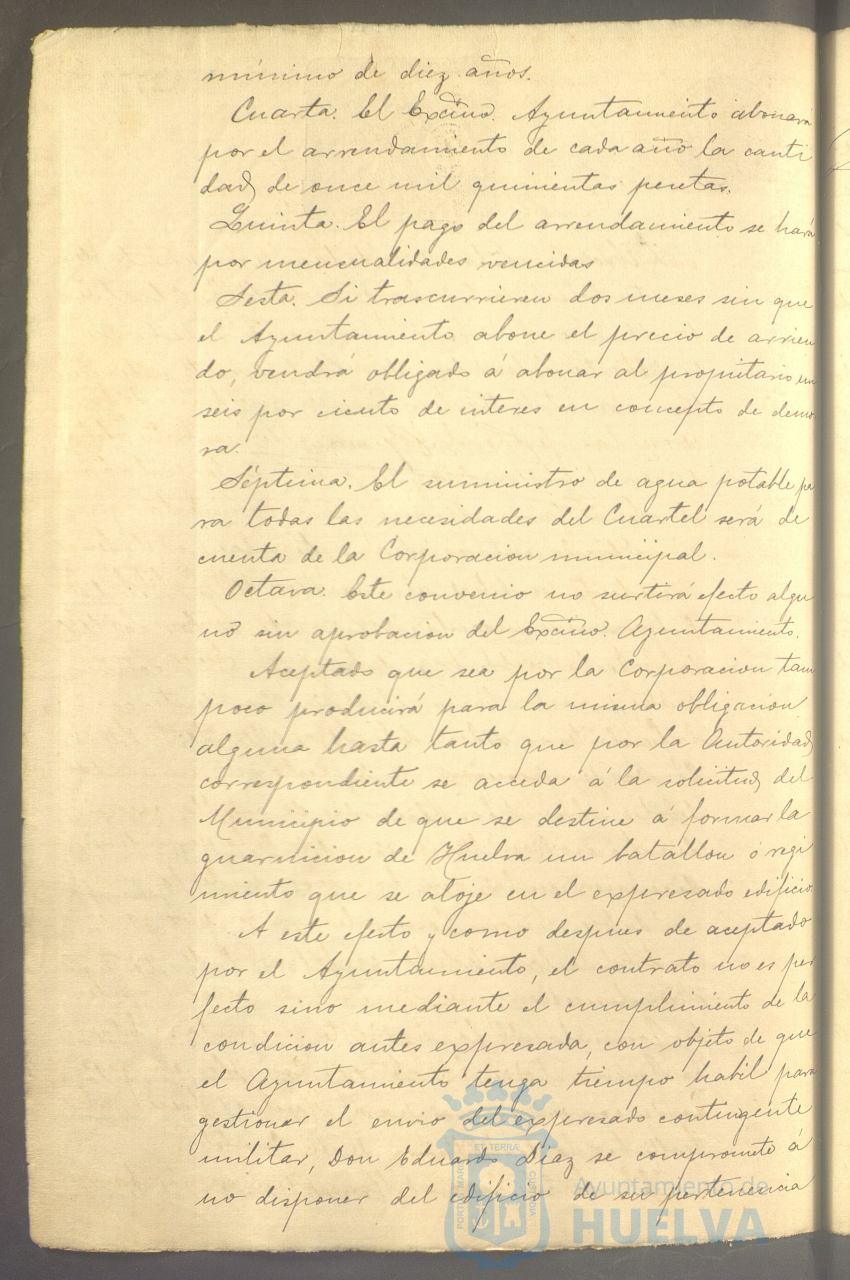 mínimo de diez años.
Cuarta. El Excmo. Ayuntamiento abonará
por el arrendamiento de cada año la canti
dad de once mil quinientas pesetas.
Quinta. El pago del arrendamiento se hará
por mensualidades vencidas
Sesta. Si trascurrieren dos meses sin que
el Ayuntamiento abone el precio de arrien
do, vendrá obligado á abonar al propietario un
seis por ciento de interes en concepto de demo
ra.
Séptima. El suministro de agua potable pa
ra todas las necesidades del Cuartel será de
cuenta de la Corporacion municipal.
Octava. Este convenio no surtirá efecto algu
no sin aprobacion del Excmo. Ayuntamiento.
Aceptado que sea por la Corporacion tam
poco producirá para la misma obligacion
alguna hasta tanto que por la Autoridad
correspondiente se acceda á la solicitud del
Municipio de que se destine á formar la
guarnicion de Huelva un batallon ó regi
miento que se aloje en el expresado edificio
A este efecto y como despues de aceptado
por el Ayuntamiento, el contrato no es per
fecto sino mediante el cumplimiento de la
condicion antes expresada, con objeto de que
el Ayuntamiento tenga tiempo habil para
gestionar el envio del expresado contingente
militar, Don Eduardo Díaz se compromete á
no disponer del edificio de su pertenencia
PORTUS MARIS ET TERRA CUSTODIA
Ayuntamiento de
HUELVA